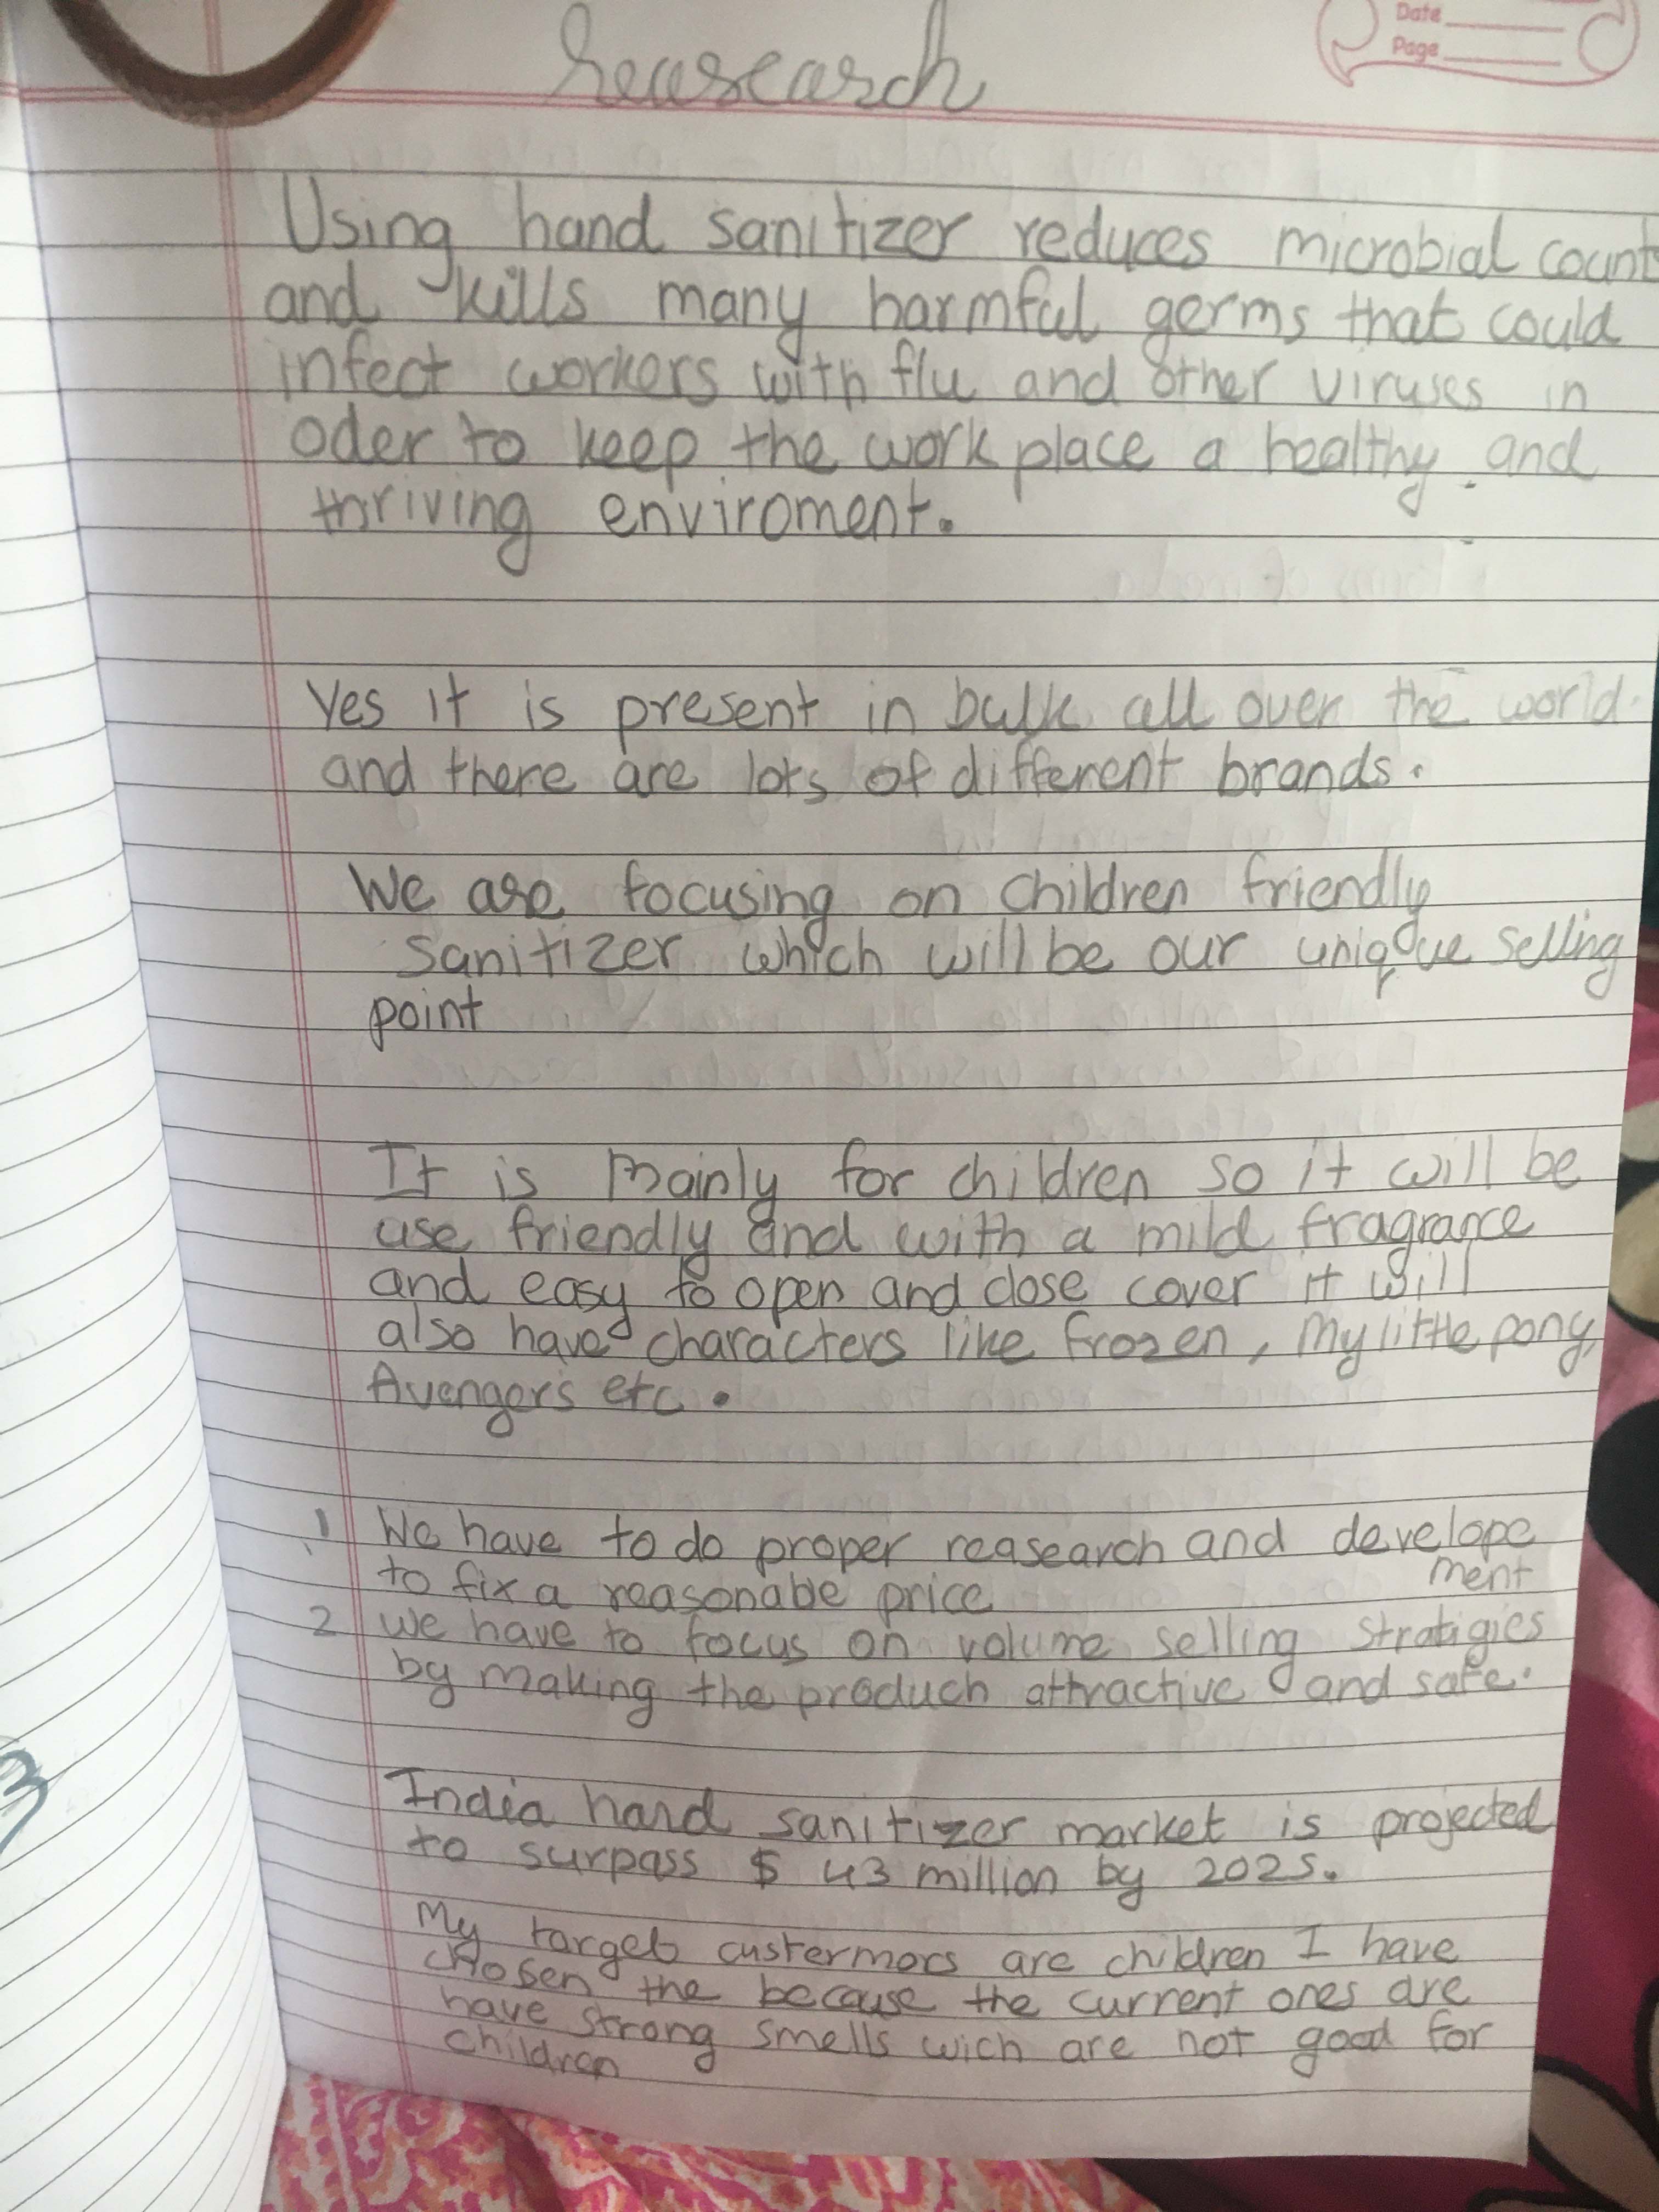 Date
Page
reasearch
Using hand sanitizer reduces microbial counts
and kills many harmful germs that could
infect workers with flu and other viruses in
oder to keep the work place a healthy and
thriving enviroment.
Yes it is present in bulk all over the world
and there are lots of different brands.
We are focusing on children friendly
sanitizer which will be our unique selling
point
It is Mainly for children so it will be
use friendly and with a mild fragrance
and easy to open and close cover it will
also have characters like frozen, My little pony,
Avengers etc.
1 We have to do proper reasearch and develope
ment
to fix a reasonable price
2 we have to focus on volume selling stratigies
by making the product attractive and safe.
India hand sanitizer market is projected
to surpass $ 43 million by 2025.
My target custermors are children I have
chosen the because the current ones are
have strong smells wich are not good for
children